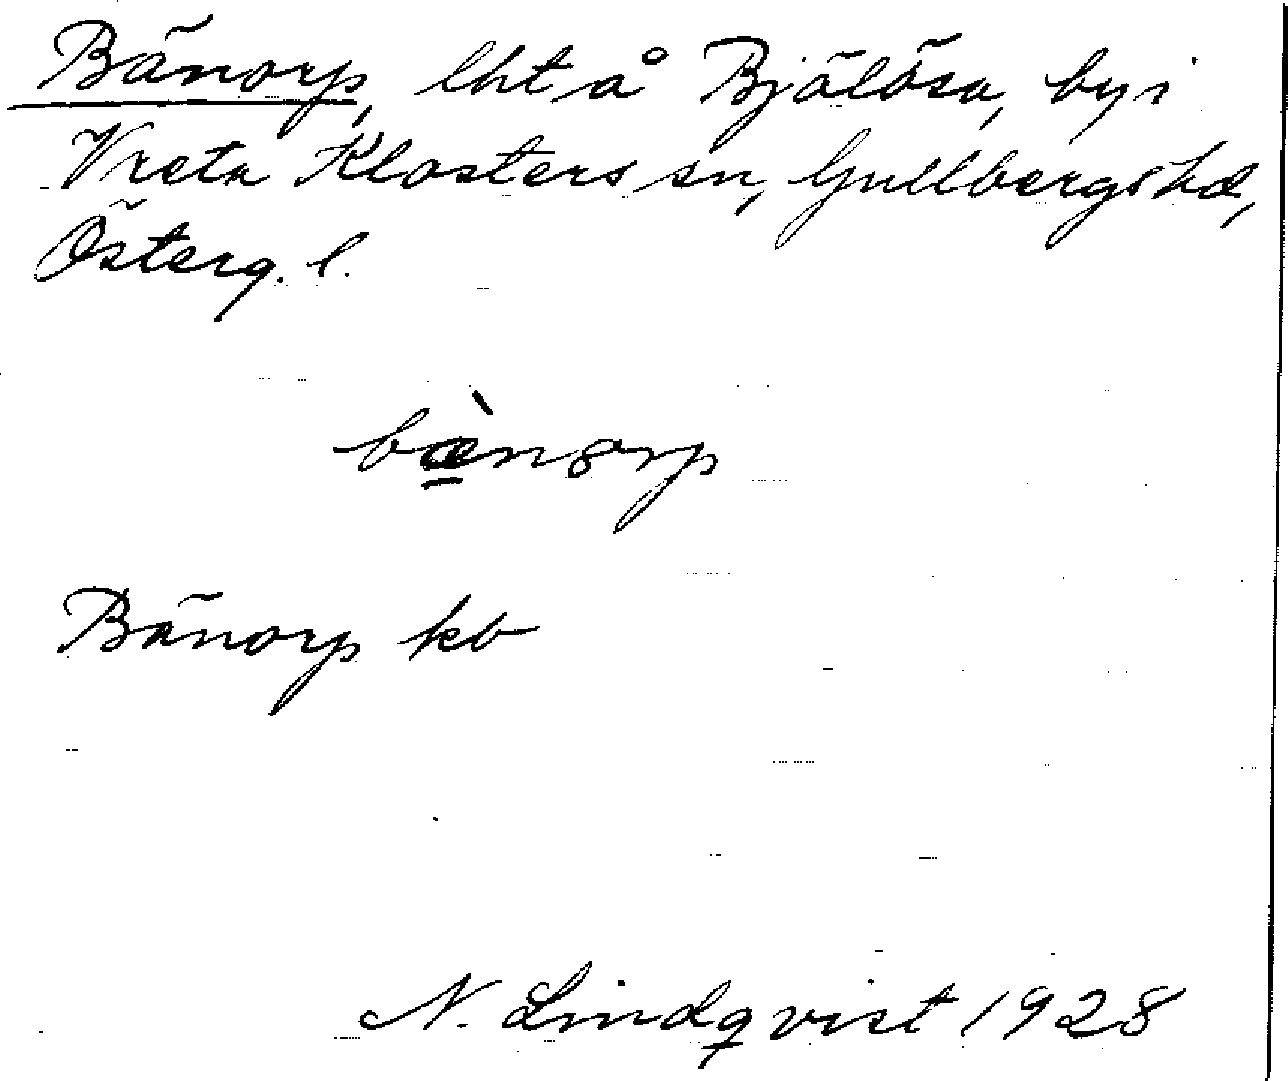 Bänorp, lht å Bjälösa, by i
Vreta Klosters sn, Gullbergs hd,
Österg. l.
bæ̀nꝏrp
Bänorp kb
N. Lindqvist 1928